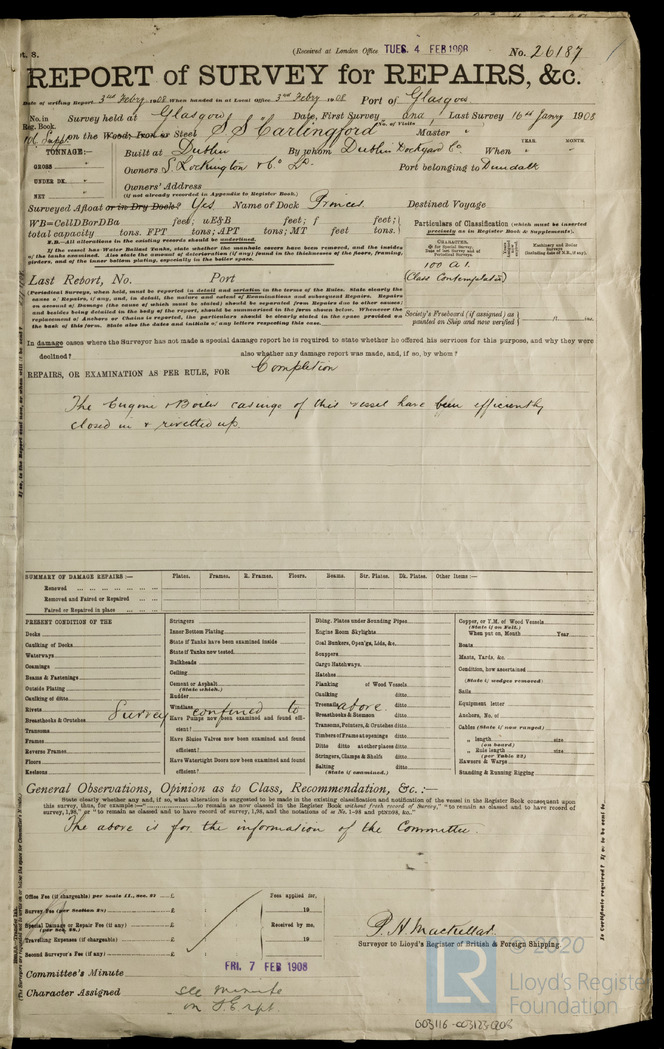 (Received at London Office TUES. 4 FEB 1908 No. 26187
REPORT of SURVEY for REPAIRS, &c.
Date of writing Report 3rd Feby 1908 When handed in at Local Office 3rd Feby 1908 Port of Glasgow
No. in Reg. Book. Survey held at Glasgow Date, First Survey and Last Survey 16th Jany 1908
(No. of Visits
on the Wood, Iron or Steel S S Carlingford Master
TONNAGE:— Built at Dublin By whom Dublin Dockyard Co When YEAR. MONTH.
GROSS Owners S. Lockington & Co Ld. Port belonging to Dundalk
UNDER DK. Owners' Address
NET (if not already recorded in Appendix to Register Book.)
Surveyed Afloat or in Dry Dock? Yes Name of Dock Princes Destined Voyage
WB=CellDBorDBa feet; uE&B feet; f feet;
total capacity tons. FPT tons; APT tons; MT feet tons.
N.B.—All alterations in the existing records should be underlined.
If the vessel has Water Ballast Tanks, state whether the manhole covers have been removed, and the insides
of the tanks examined. Also state the amount of deterioration (if any) found in the thicknesses of the floors, framing,
girders, and of the inner bottom plating, especially in the boiler space.
Particulars of Classification (which must be inserted
precisely as in Register Book & Supplements).
CHARACTER.
100 A 1.
(Class Contemplated)
Last Report, No. Port
(Periodical Surveys, when held, must be reported in detail and seriatim in the terms of the Rules. State clearly the
cause of Repairs, if any, and, in detail, the nature and extent of Examinations and subsequent Repairs. Repairs
on account of Damage (the cause of which must be stated) should be separated from Repairs due to other causes;
and besides being detailed in the body of the report, should be summarised in the form shown below. Whenever the
replacement of Anchors or Chains is reported, the particulars should be clearly stated in the space provided on
the back of this form. State also the dates and initials of any letters respecting this case.
Society's Freeboard (if assigned) as
painted on Ship and now verified ft. ins.
In damage cases where the Surveyor has not made a special damage report he is required to state whether he offered his services for this purpose, and why they were
declined? also whether any damage report was made, and, if so, by whom?
REPAIRS, OR EXAMINATION AS PER RULE, FOR Completion
The Engine & Boiler casings of this vessel have been efficiently
closed in & rivetted up.
SUMMARY OF DAMAGE REPAIRS:— Plates. Frames. R. Frames. Floors. Beams. Str. Plates. Dk. Plates. Other Items:—
Renewed
Removed and Faired or Repaired
Faired or Repaired in place
PRESENT CONDITION OF THE
Decks
Caulking of Decks
Waterways
Coamings
Beams & Fastenings
Outside Plating
Caulking of ditto
Rivets
Breasthooks & Crutches
Transoms
Frames
Reverse Frames
Floors
Keelsons
Stringers
Inner Bottom Plating
State if Tanks have been examined inside
State if Tanks now tested
Bulkheads
Ceiling
Cement or Asphalt
(State which.)
Rudder
Windlass
Have Pumps now been examined and found efficient?
Have Sluice Valves now been examined and found efficient?
Have Watertight Doors now been examined and found efficient?
Dblng. Plates under Sounding Pipes
Engine Room Skylights
Coal Bunkers, Open'gs, Lids, &c.
Scuppers
Cargo Hatchways
Hatches
Planking of Wood Vessels
Caulking ditto
Treenails ditto
Breasthooks & Stemson ditto
Transoms, Pointers, & Crutches ditto
Timbers of Frame at openings ditto
Ditto ditto at other places ditto
Stringers, Clamps & Shelfs ditto
Salting ditto
(State if examined.)
Copper, or Y.M. of Wood Vessels
(State if on Felt.)
When put on, Month Year
Boats
Masts, Yards, &c.
Condition, how ascertained
(State if wedges removed)
Sails
Equipment letter
Anchors, No. of
Cables (State if now ranged)
" length size
(on board)
" Rule length size
(per Table 22)
Hawsers & Warps
Standing & Running Rigging
Survey confined to above.
General Observations, Opinion as to Class, Recommendation, &c.:—
State clearly whether any and, if so, what alteration is suggested to be made in the existing classification and notification of the vessel in the Register Book consequent upon
The above is for the information of the Committee.
Office Fee (if chargeable) per scale £ Fees applied for,
Survey Fee (per Section 28) £ 19
Special Damage or Repair Fee (if any) £ Received by me,
Travelling Expenses (if chargeable) £ 19
Second Surveyor's Fee (if any) £
P. H. MacKellar
Surveyor to Lloyd's Register of British & Foreign Shipping.
Committee's Minute FRI. 7 FEB 1908
Character Assigned see minute
on F.E rpt
© 2020
LR
Lloyd's Register
Foundation
003116-003123-0208